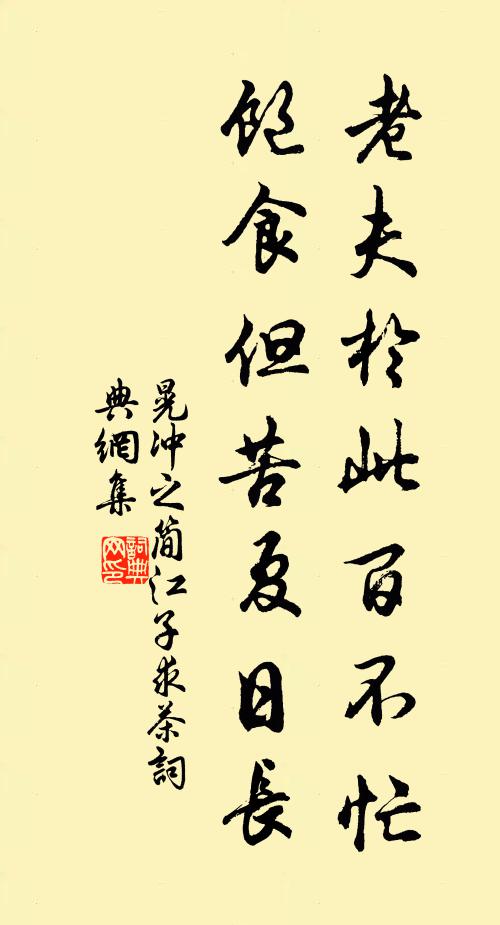 老夫於此百不忙
飽食但苦夏日長
晁沖之簡江子求茶詞
典網集
詞典網印